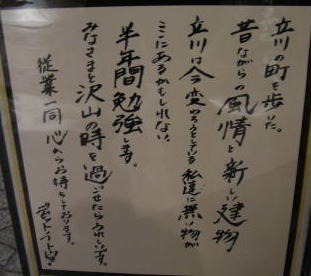 立川の町を歩いた。
昔ながらの風情と新しい建物
立川は今変わろうとしている 私達に無い物が
ここにあるかもしれない。
半年間勉強します。
みなさまと沢山の時を過ごせたらうれしいです。
従業一同 心からお待ちしております。